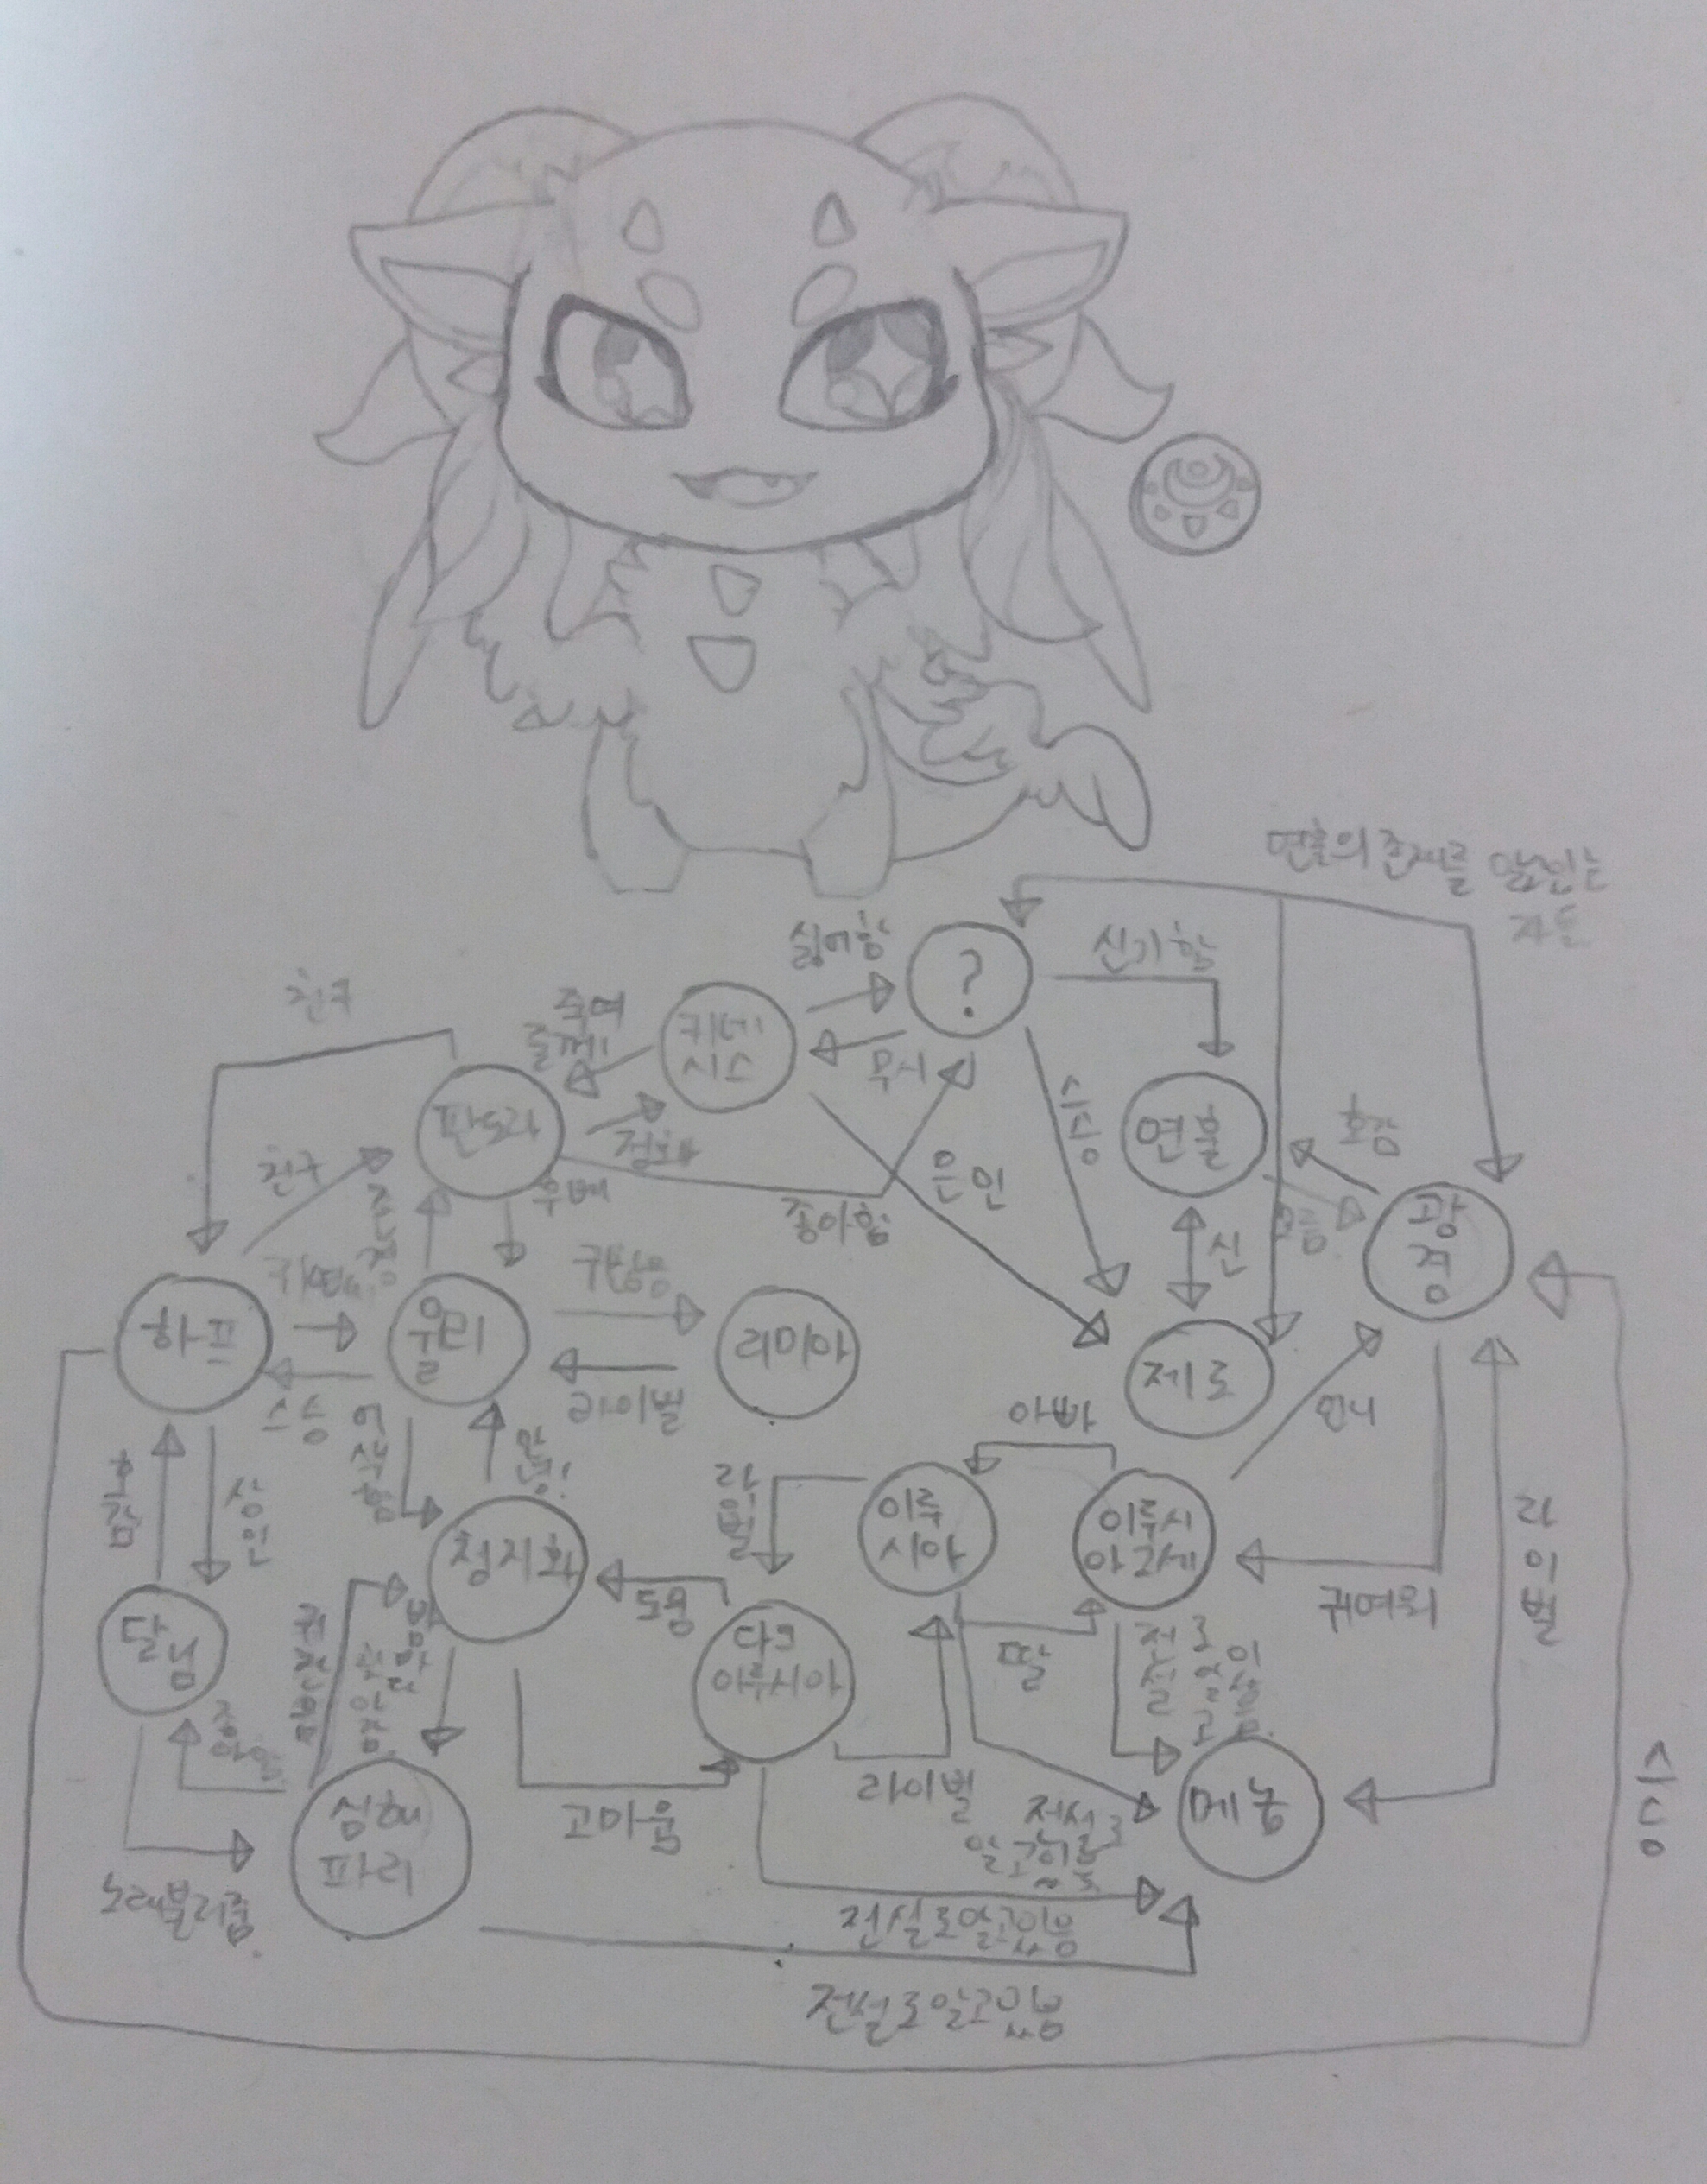 연훌의 존재를
자들
싫어함
?
신기함
친구
죽여
줄께!
키네
시스
무시
스승
연훌
호감
판도라
정화
친구
후배
은인
좋아함
신
모름
광
경
존경
하프
윌리
귀찮음
리미아
제로
스승
라이벌
언니
아빠
호감
상인
어색함
안녕!
라이벌
이루
시아
이루시
아 2세
라이벌
청지화
도움
귀여워
달님
다크
이루시아
딸
전설로
알고
있음
좋아함
심해
파리
고마움
라이벌
메농
전설로
알고있음
스승
노래불러줌
전설로알고있음
전설로알고있음